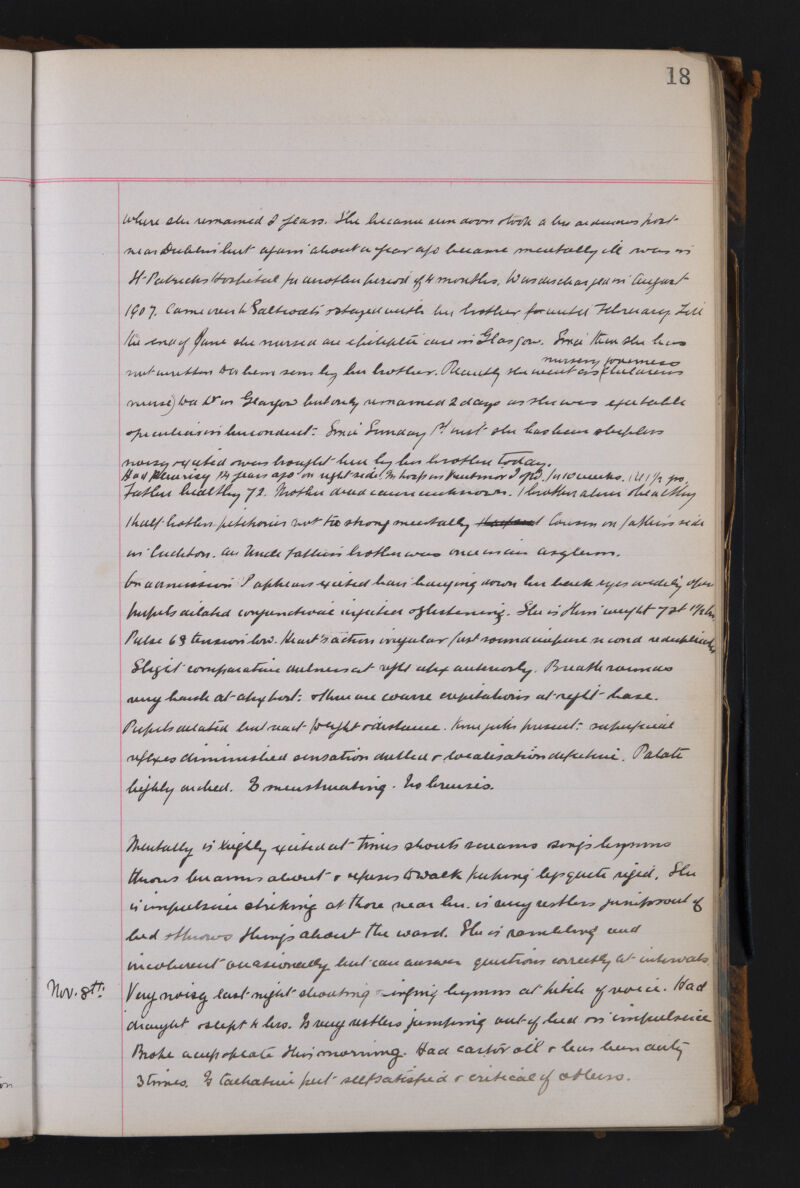 18
where she remained 2 years. She became run down & took a less arduous post
near Dublin but again about a year ago became mentally ill was in
St Patricks Hospital for another period of 4 months. Was discharged in August
1907. Came over to Saltcoats & stayed with her brother until February. Till
the end of June she nursed an epileptic case in Glasgow. Since then she has
not written or been seen by her brother. Recently she went as nursery governess (childrens
nurse) to a Dr in Glasgow but only remained 2 days as she was excitable
& peculiar in her conduct. Since Sunday 1st inst she has been sleepless
noisy excited & was brought here by her brother today.
Had Pleurisy 14 years ago on right side. In hosp for 10 weeks.
Father healthy 72. Mother dead cause unknown. 1 brother alive & healthy
1 half brother petitioner not too strong mentally Cousin on fathers side
an Uncle fathers brother was once in an asylum.
On admission P appears excited hair hanging down her back eyes widely open
pupils dilated conjunctivae injected & glistening. She is thin weight 7 st
Pulse 68 tension low. Heart's action irregular first sound impure second reduplicated
Slight comparative dulness at right apex anteriorly. Breath sounds
very harsh at apex post: & there are coarse crepitations at right base.
Pupils dilated but react to light & distance. Knee jerks present: superficial
reflexes diminished sensation dulled & localisation defective. Palate
highly arched. Is menstruating. No bruises.
Mentally is highly excited at times shouts screams sings hymns
throws her arms about & refuses to walk keeping legs quite rigid. She
is impulsive striking at those near her. is very restless jumps out of
bed & throws things about the ward. She is rambling and
incoherent occasionally but can answer questions correctly at intervals.
Nov. 8th: Very noisy last night shouting & singing hymns at pitch of voice. Had
draught & slept 4 hrs. Is very restless jumping out of bed & is impulsive
Broke a cup & plate this morning. Had castor oil & has been dirty
3 times. Is talkative pert self satisfied & critical of others.